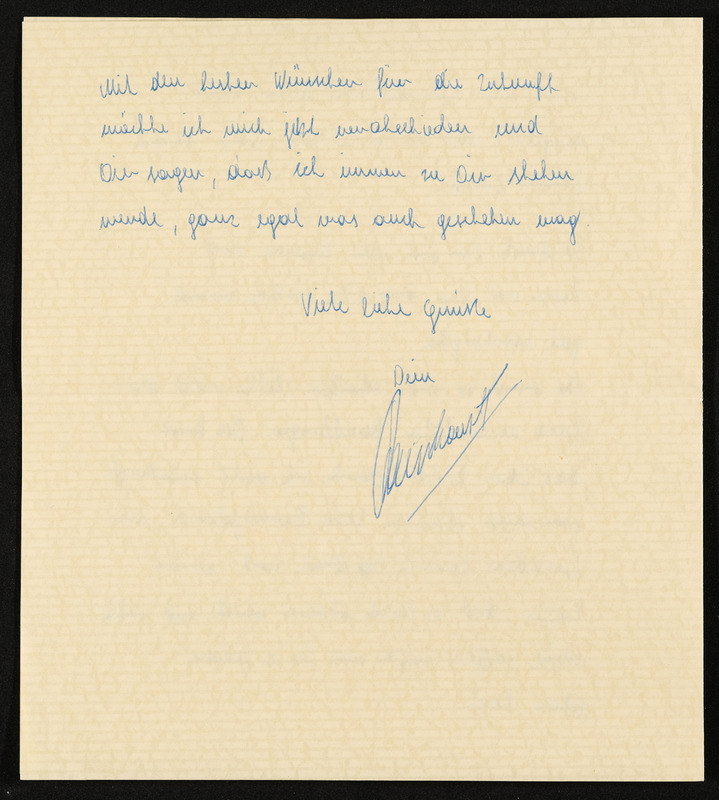 Mit den besten Wünschen für die Zukunft
möchte ich mich jetzt verabschieden und
Dir sagen, daß ich immer zu Dir stehen
werde, ganz egal was auch geschehen mag.
Viele liebe Grüße
Dein
Reinhardt